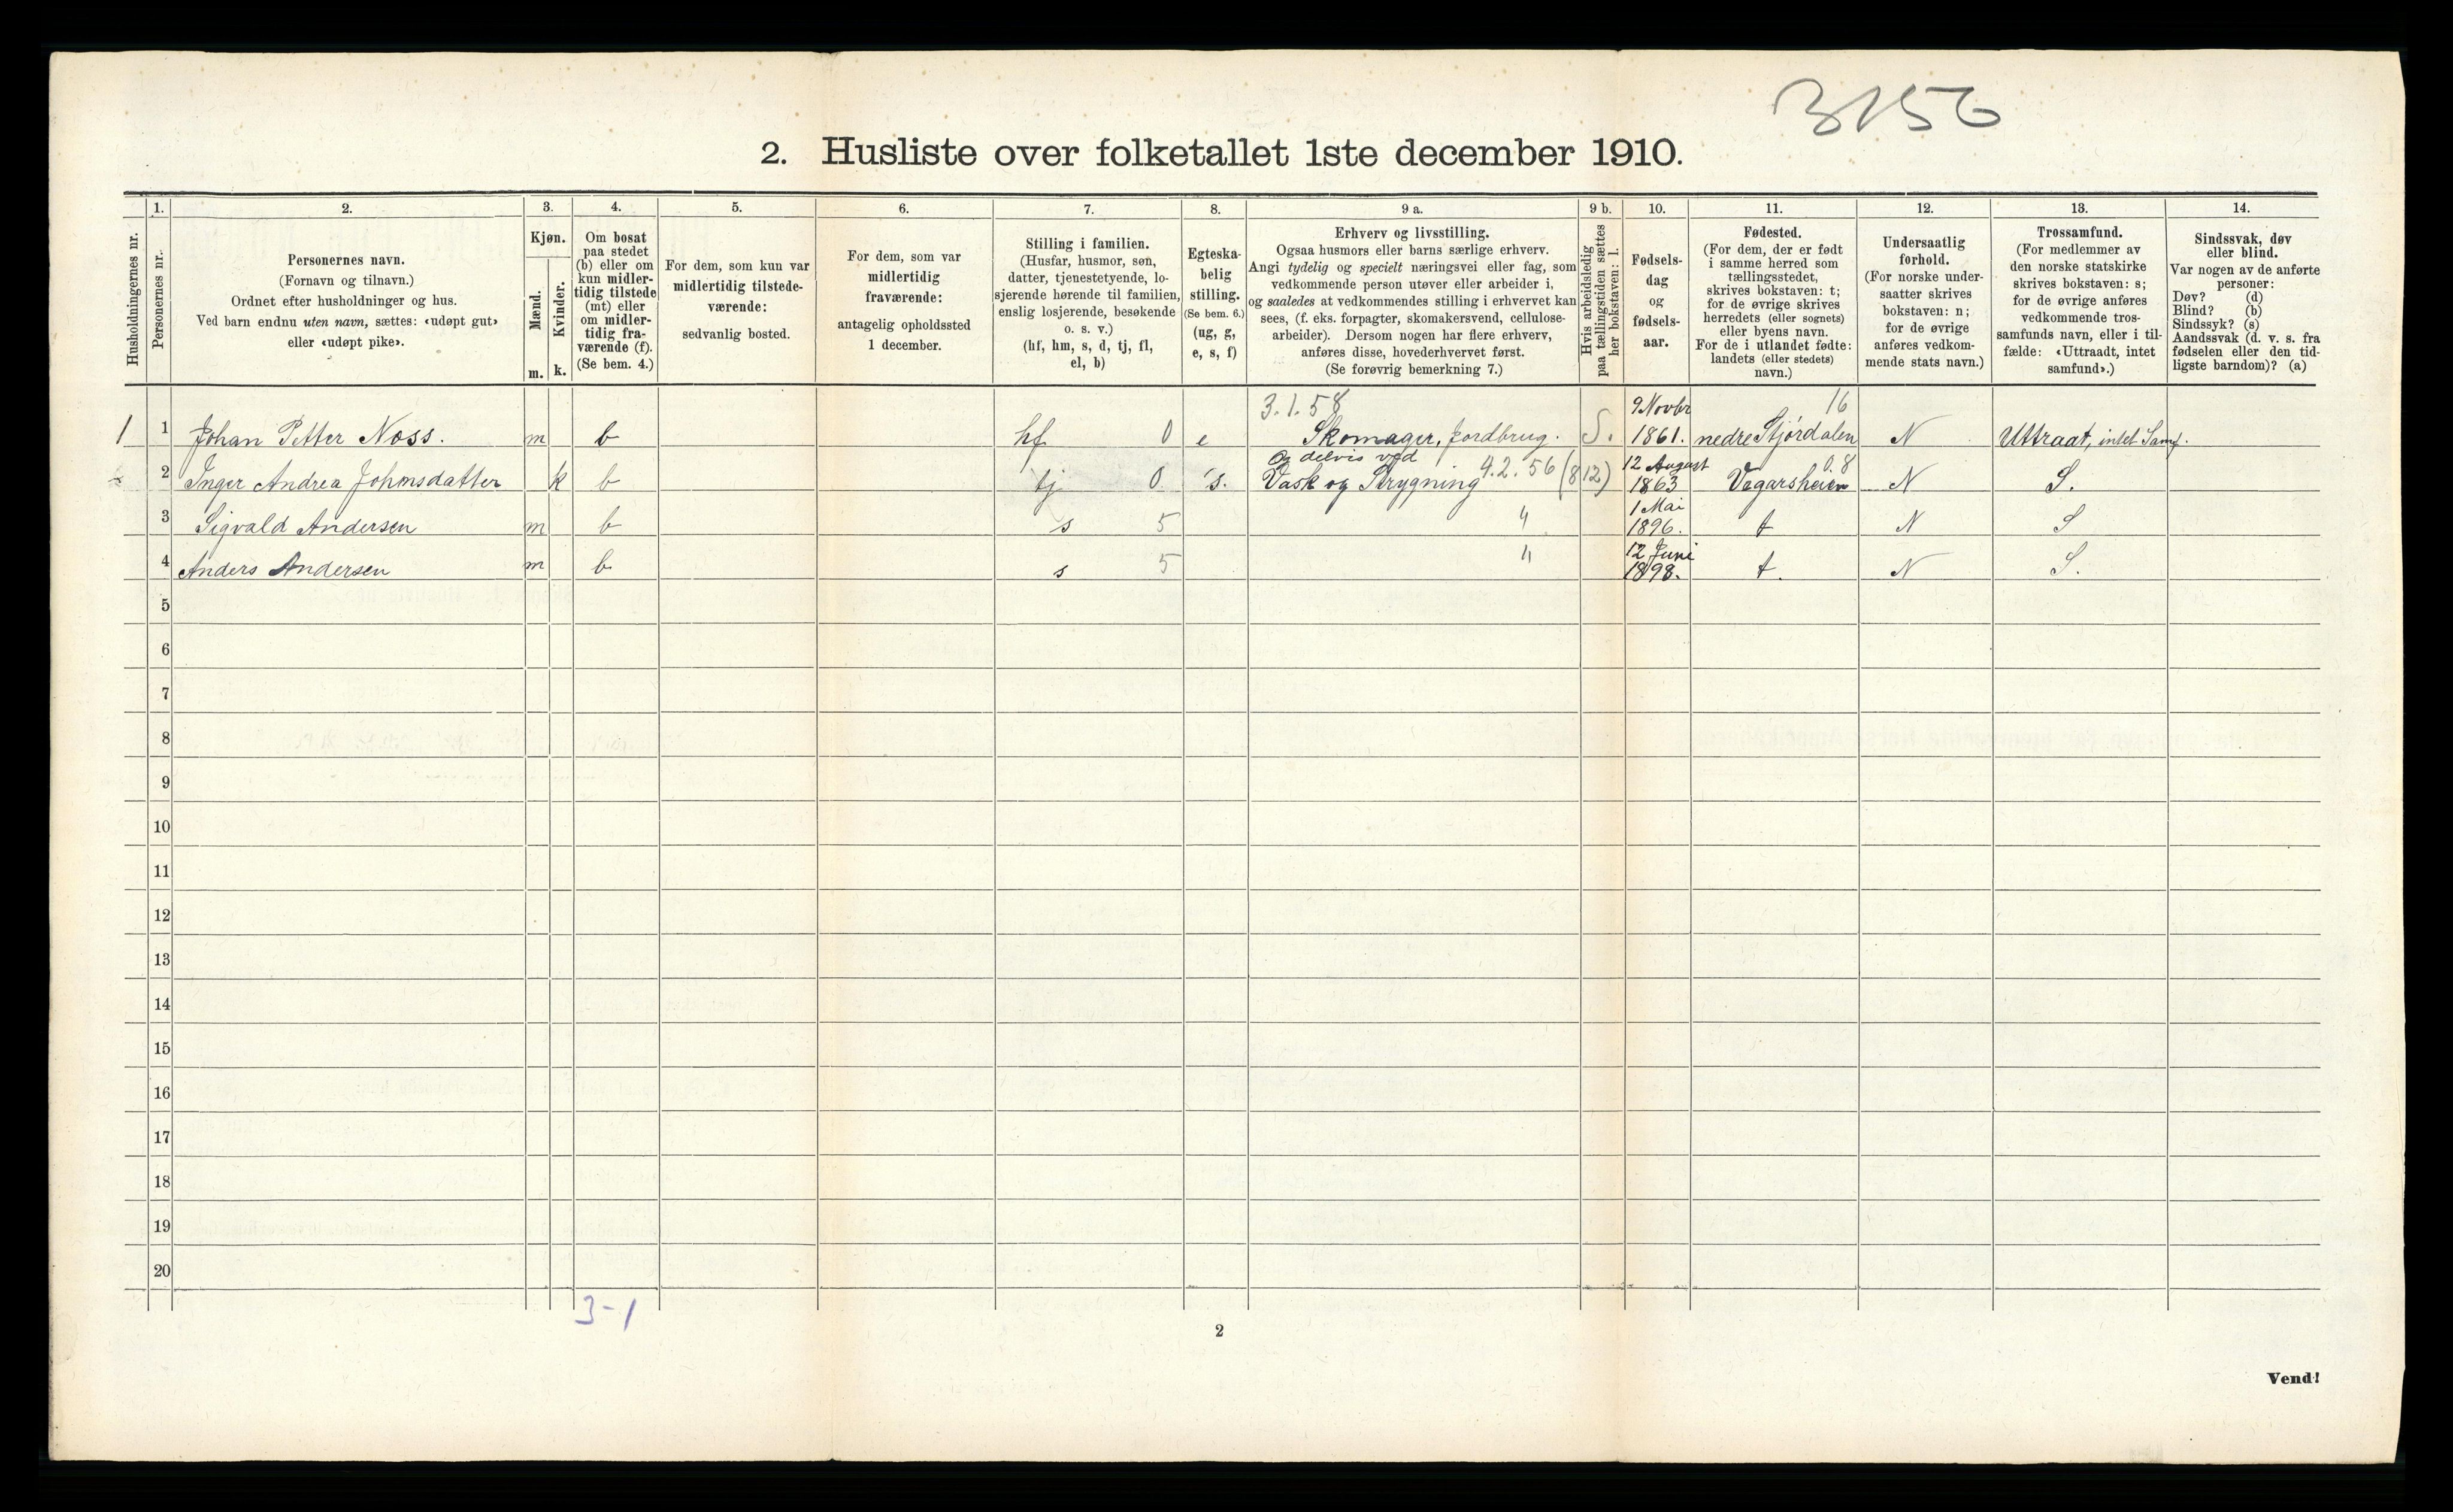 3156
2. Husliste over folketallet 1ste december 1910.
Husholdningernes nr.
1.
Personernes nr.
2.
Personernes navn.
(Fornavn og tilnavn.)
Ordnet efter husholdninger og hus.
Ved barn endnu uten navn, sættes: «udøpt gut»
eller «udøpt pike».
3.
Kjøn.
Mænd.
Kvinder.
m. k.
4.
Om bosat
paa stedet
(b) eller om
kun midler-
tidig tilstede
(mt) eller
om midler-
tidig fra-
værende (f).
(Se bem. 4.)
5.
For dem, som kun var
midlertidig tilstede-
værende:
sedvanlig bosted.
6.
For dem, som var
midlertidig
fraværende:
antagelig opholdssted
1 december.
7.
Stilling i familien.
(Husfar, husmor, søn,
datter, tjenestetyende, lo-
sjerende hørende til familien,
enslig losjerende, besøkende
o. s. v.)
(hf, hm, s, d, tj, fl,
el, b)
8.
Egteska-
belig
stilling.
(Se bem. 6.)
(ug, g,
e, s, f)
9 a.
Erhverv og livsstilling.
Ogsaa husmors eller barns særlige erhverv.
Angi tydelig og specielt næringsvei eller fag, som
vedkommende person utøver eller arbeider i,
og saaledes at vedkommendes stilling i erhvervet kan
sees, (f. eks. forpagter, skomakersvend, cellulose-
arbeider). Dersom nogen har flere erhverv,
anføres disse, hovederhvervet først.
(Se forøvrig bemerkning 7.)
9 b.
Hvis arbeidsledig
paa tællingstiden sættes
her bokstaven: l.
10.
Fødsels-
dag
og
fødsels-
aar.
11.
Fødested.
(For dem, der er født
i samme herred som
tællingsstedet,
skrives bokstaven: t;
for de øvrige skrives
herredets (eller sognets)
eller byens navn.
For de i utlandet fødte:
landets (eller stedets)
navn.)
12.
Undersaatlig
forhold.
(For norske under-
saatter skrives
bokstaven: n;
for de øvrige
anføres vedkom-
mende stats navn.)
13.
Trossamfund.
(For medlemmer av
den norske statskirke
skrives bokstaven: s;
for de øvrige anføres
vedkommende tros-
samfunds navn, eller i til-
fælde: «Uttraadt, intet
samfund».)
14.
Sindssvak, døv
eller blind.
Var nogen av de anførte
personer:
Døv? (d)
Blind? (b)
Sindssyk? (s)
Aandssvak (d. v. s. fra
fødselen eller den tid-
ligste barndom)? (a)
3.1.58 9 Novbr 16
1 1 Johan Petter Noss. m b hf 0 e Skomager, Jordbrug. S. 1861. nedre Stjördalen N Uttraat, intet Samf.
og delvis ved 4.2.56 (812) 12 August 0.8
2 Inger Andrea Johnsdatter k b tj 0 s. Vask og Strygning 1863 Vegarsheien N S.
1 Mai
3 Sigvald Andersen m b s 5 " 1896. t N S
12 Juni
4 Anders Andersen m b s 5 " 1898. t. N S.
5
6
7
8
9
10
11
12
13
14
15
16
17
18
19
20
3-1
2
Vend!